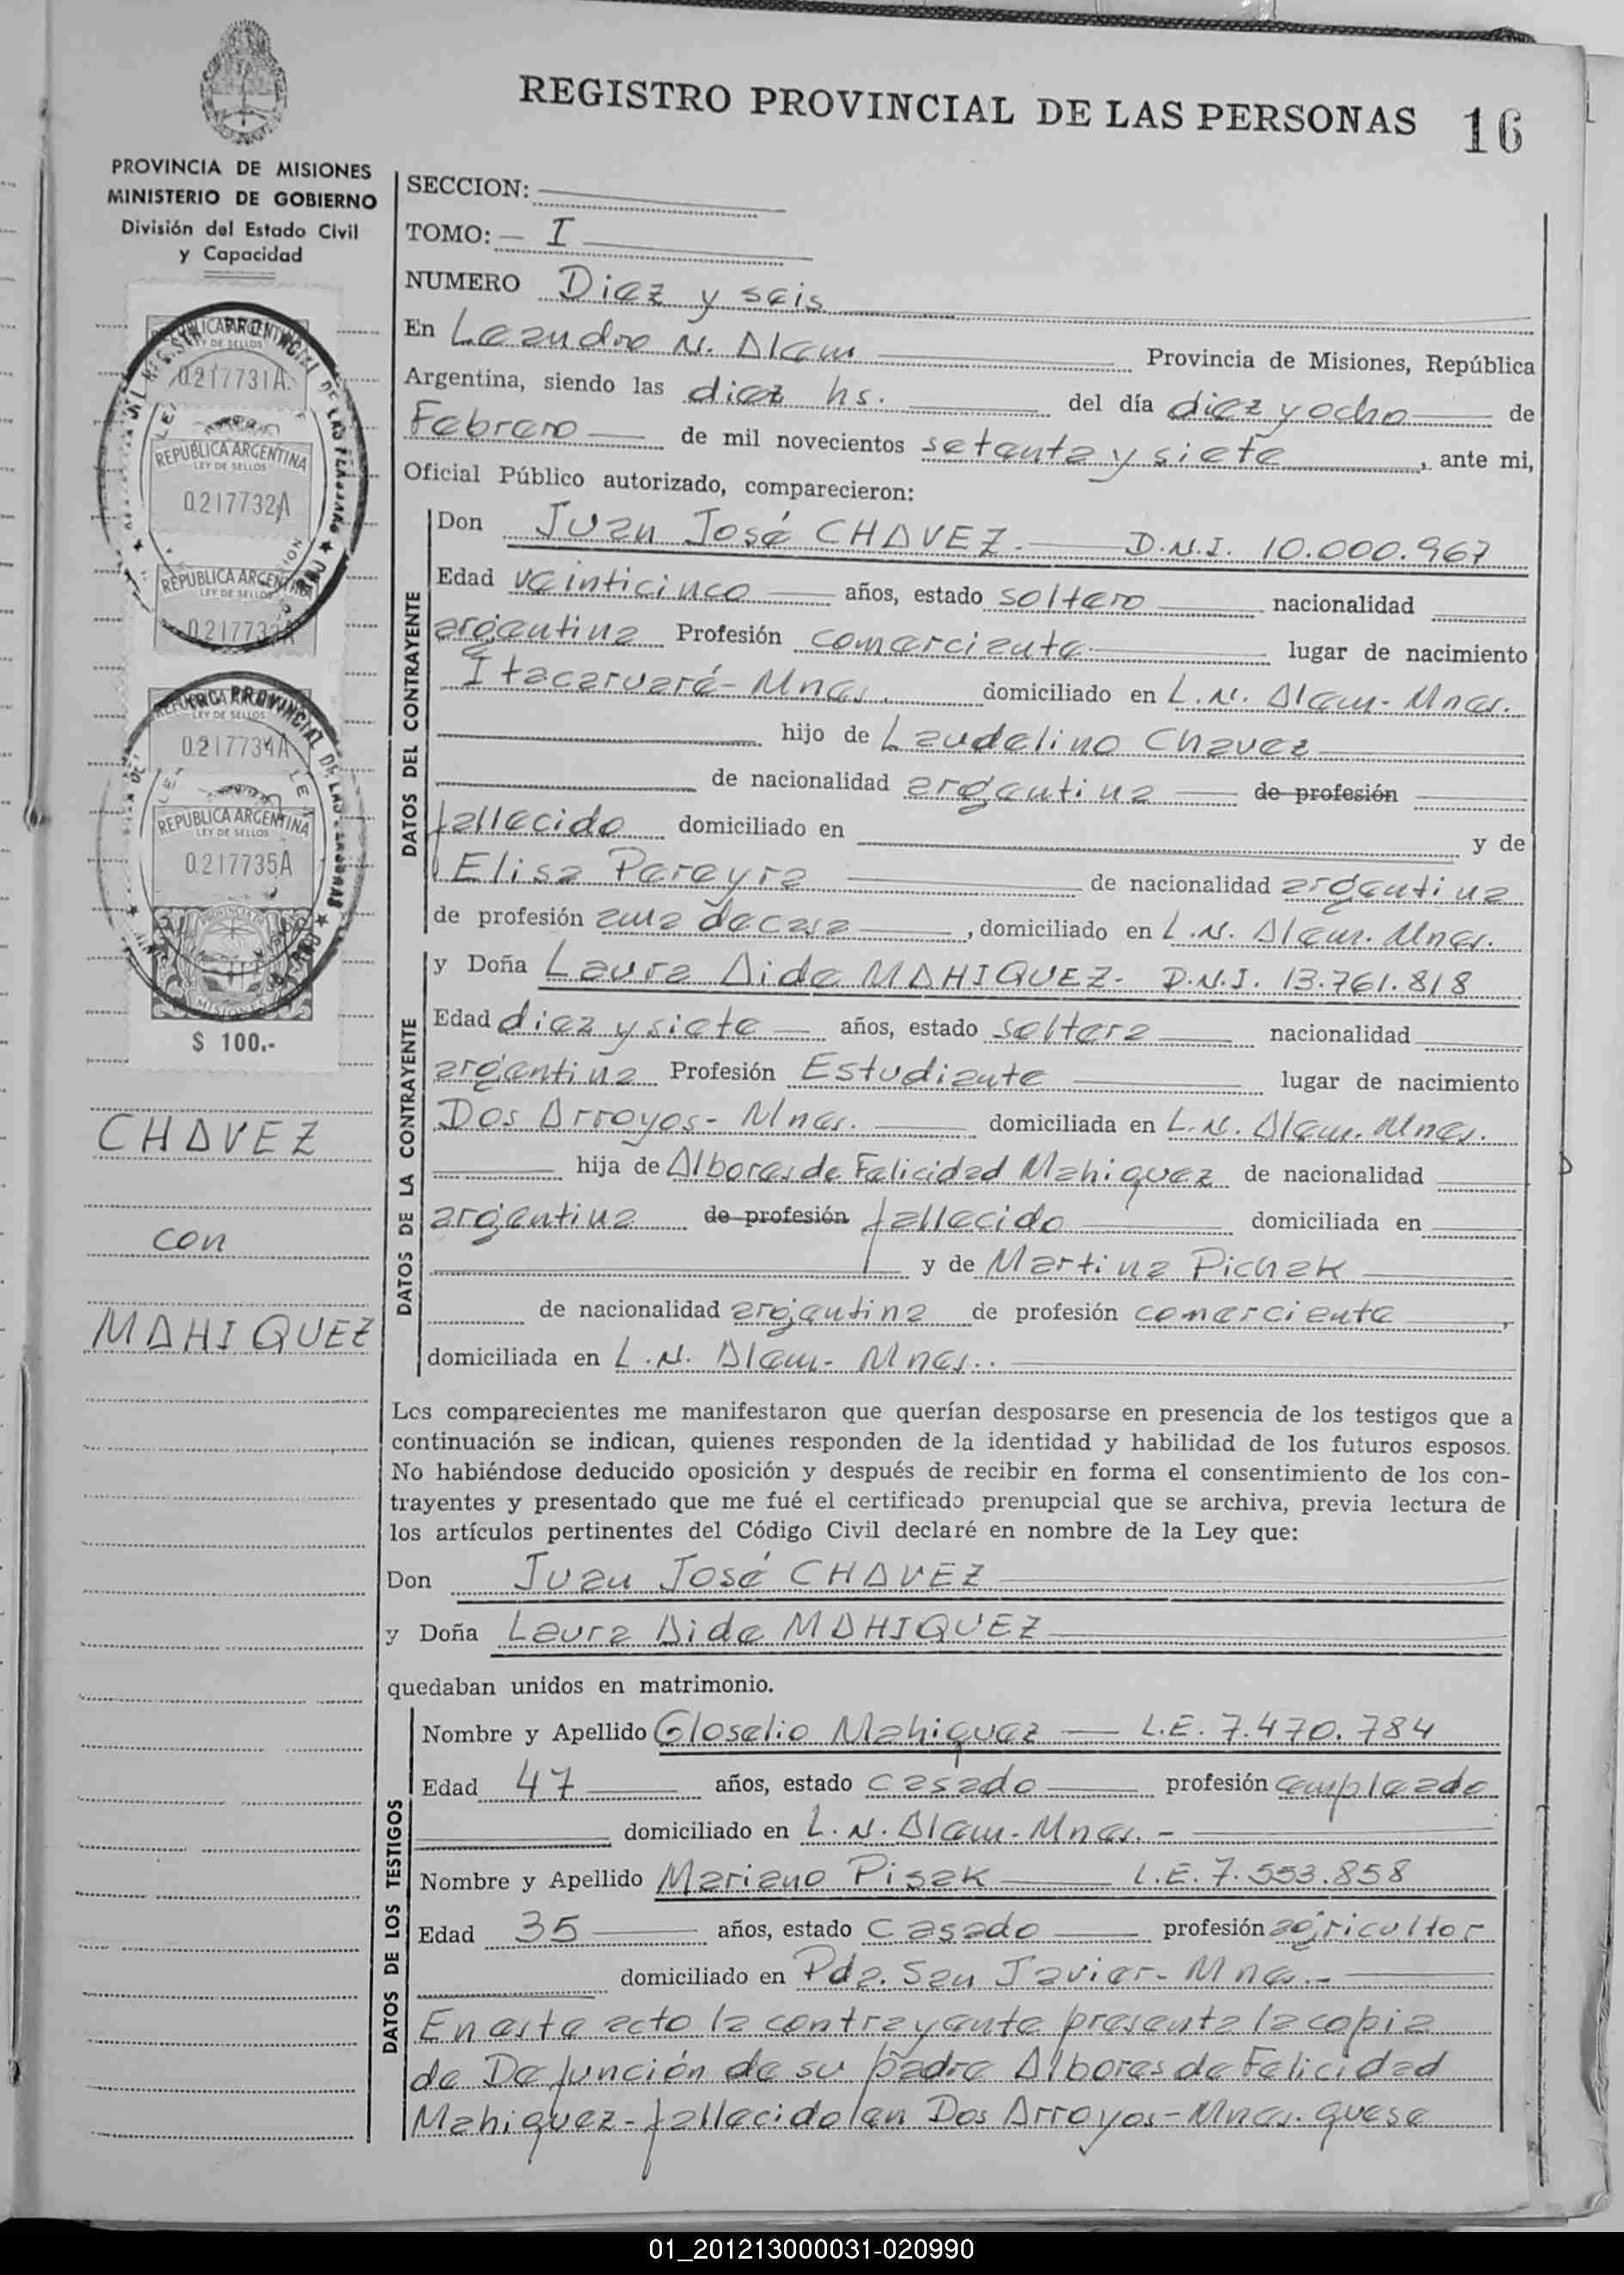 REGISTRO PROVINCIAL DE LAS PERSONAS 16
PROVINCIA DE MISIONES
MINISTERIO DE GOBIERNO
División del Estado Civil
y Capacidad
REPUBLICA ARGENTINA
LEY DE SELLOS
0217731A
REPUBLICA ARGENTINA
LEY DE SELLOS
0217732A
REPUBLICA ARGENTINA
LEY DE SELLOS
LEY DE SELLOS
0217734A
REPUBLICA ARGENTINA
LEY DE SELLOS
0217735A
MISIONES
$ 100.-
CHAVEZ
con
MAHIQUEZ
SECCION:
TOMO: - I
NUMERO Diez y seis
En Leandro N. Alem Provincia de Misiones, República
Argentina, siendo las diez hs. del día diez y ocho de
Febrero de mil novecientos setenta y siete, ante mi,
Oficial Público autorizado, comparecieron:
DATOS DEL CONTRAYENTE
Don Juan José CHAVEZ. D.N.I. 10.000.967
Edad veinticinco años, estado soltero nacionalidad
argentina Profesión comerciante lugar de nacimiento
Itacaruaré - Mnes. domiciliado en L.N. Alem - Mnes.
hijo de Laudelino Chavez
de nacionalidad argentina de profesión
fallecido domiciliado en y de
Elisa Pereyra de nacionalidad argentina
de profesión ama de casa, domiciliado en L.N. Alem. Mnes.
DATOS DE LA CONTRAYENTE
y Doña Laura Aide MAHIQUEZ - D.N.I. 13.761.818
Edad diez y siete años, estado soltera nacionalidad
argentina Profesión Estudiante lugar de nacimiento
Dos Arroyos - Mnes. domiciliada en L.N. Alem. Mnes.
hija de Albores de Felicidad Mahiquez de nacionalidad
argentina de profesión fallecido domiciliada en
y de Martina Pichak
de nacionalidad argentina de profesión comerciente,
domiciliada en L.N. Alem - Mnes..
Los comparecientes me manifestaron que querían desposarse en presencia de los testigos que a
continuación se indican, quienes responden de la identidad y habilidad de los futuros esposos.
No habiéndose deducido oposición y después de recibir en forma el consentimiento de los con-
trayentes y presentado que me fué el certificado prenupcial que se archiva, previa lectura de
los artículos pertinentes del Código Civil declaré en nombre de la Ley que:
Don Juan José CHAVEZ
y Doña Laura Aide MAHIQUEZ
quedaban unidos en matrimonio.
DATOS DE LOS TESTIGOS
Nombre y Apellido Gloselio Mahiquez L.E. 7.470.784
Edad 47 años, estado casado profesión empleado
domiciliado en L.N. Alem - Mnes. -
Nombre y Apellido Mariano Pisak L.E. 7.553.858
Edad 35 años, estado casado profesión agricultor
domiciliado en Pda. San Javier - Mnes. -
En este acto la contrayente presenta la copia
de Defunción de su padre Albores de Felicidad
Mahiquez - fallecido en Dos Arroyos - Mnes. que se
01_201213000031-020990